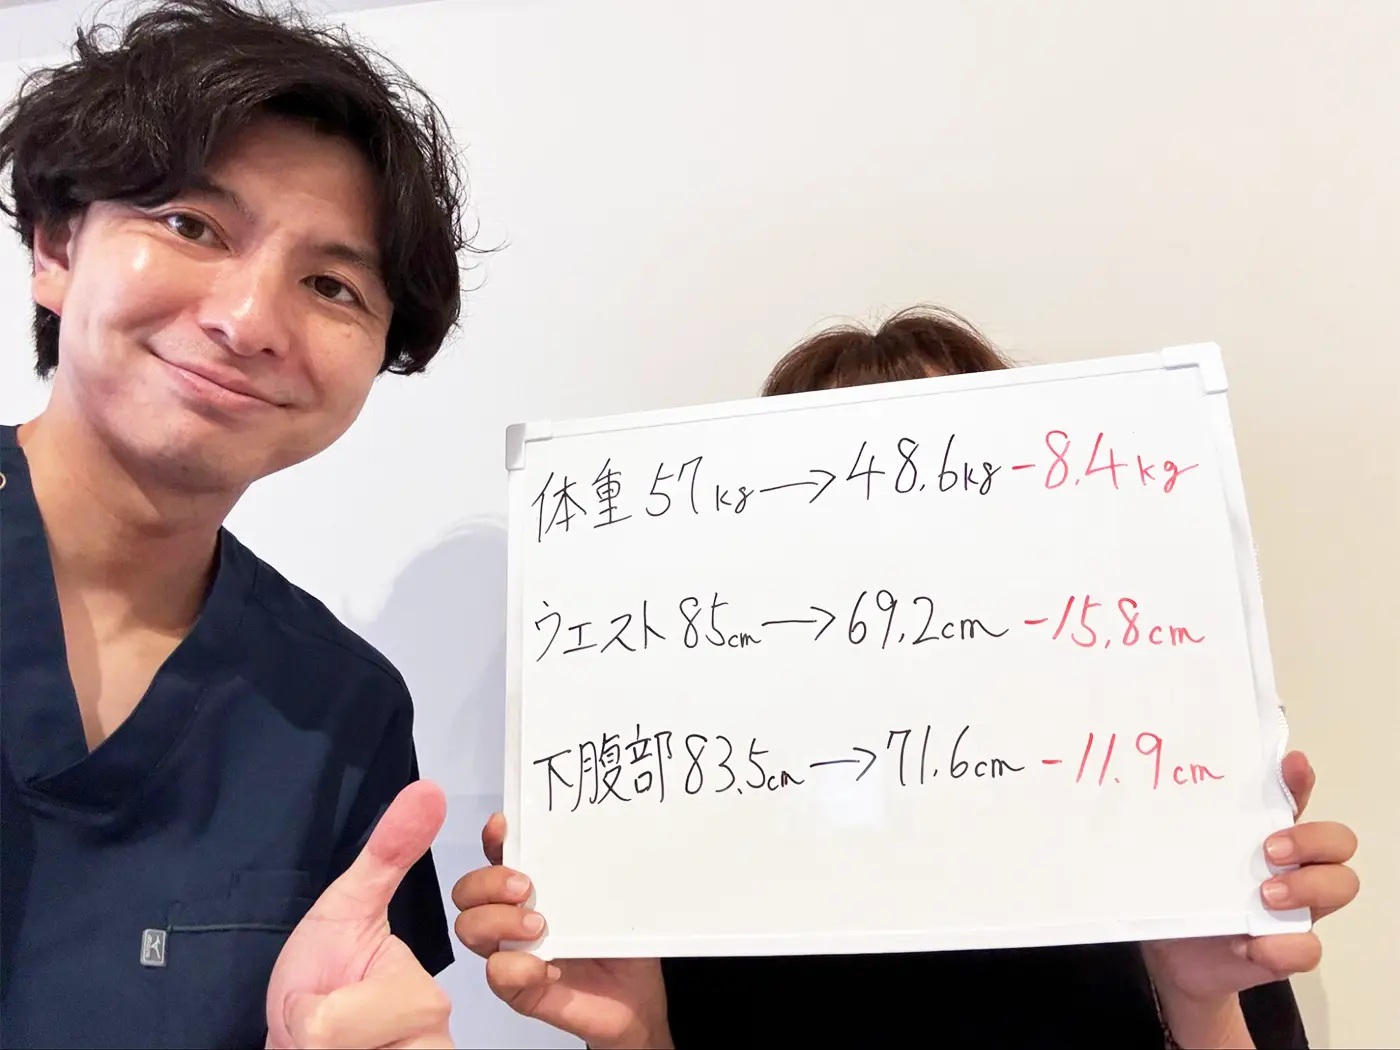 体重 57kg→48.6kg -8.4kg
ウエスト 85cm→69.2cm -15.8cm
下腹部 83.5cm→71.6cm -11.9cm